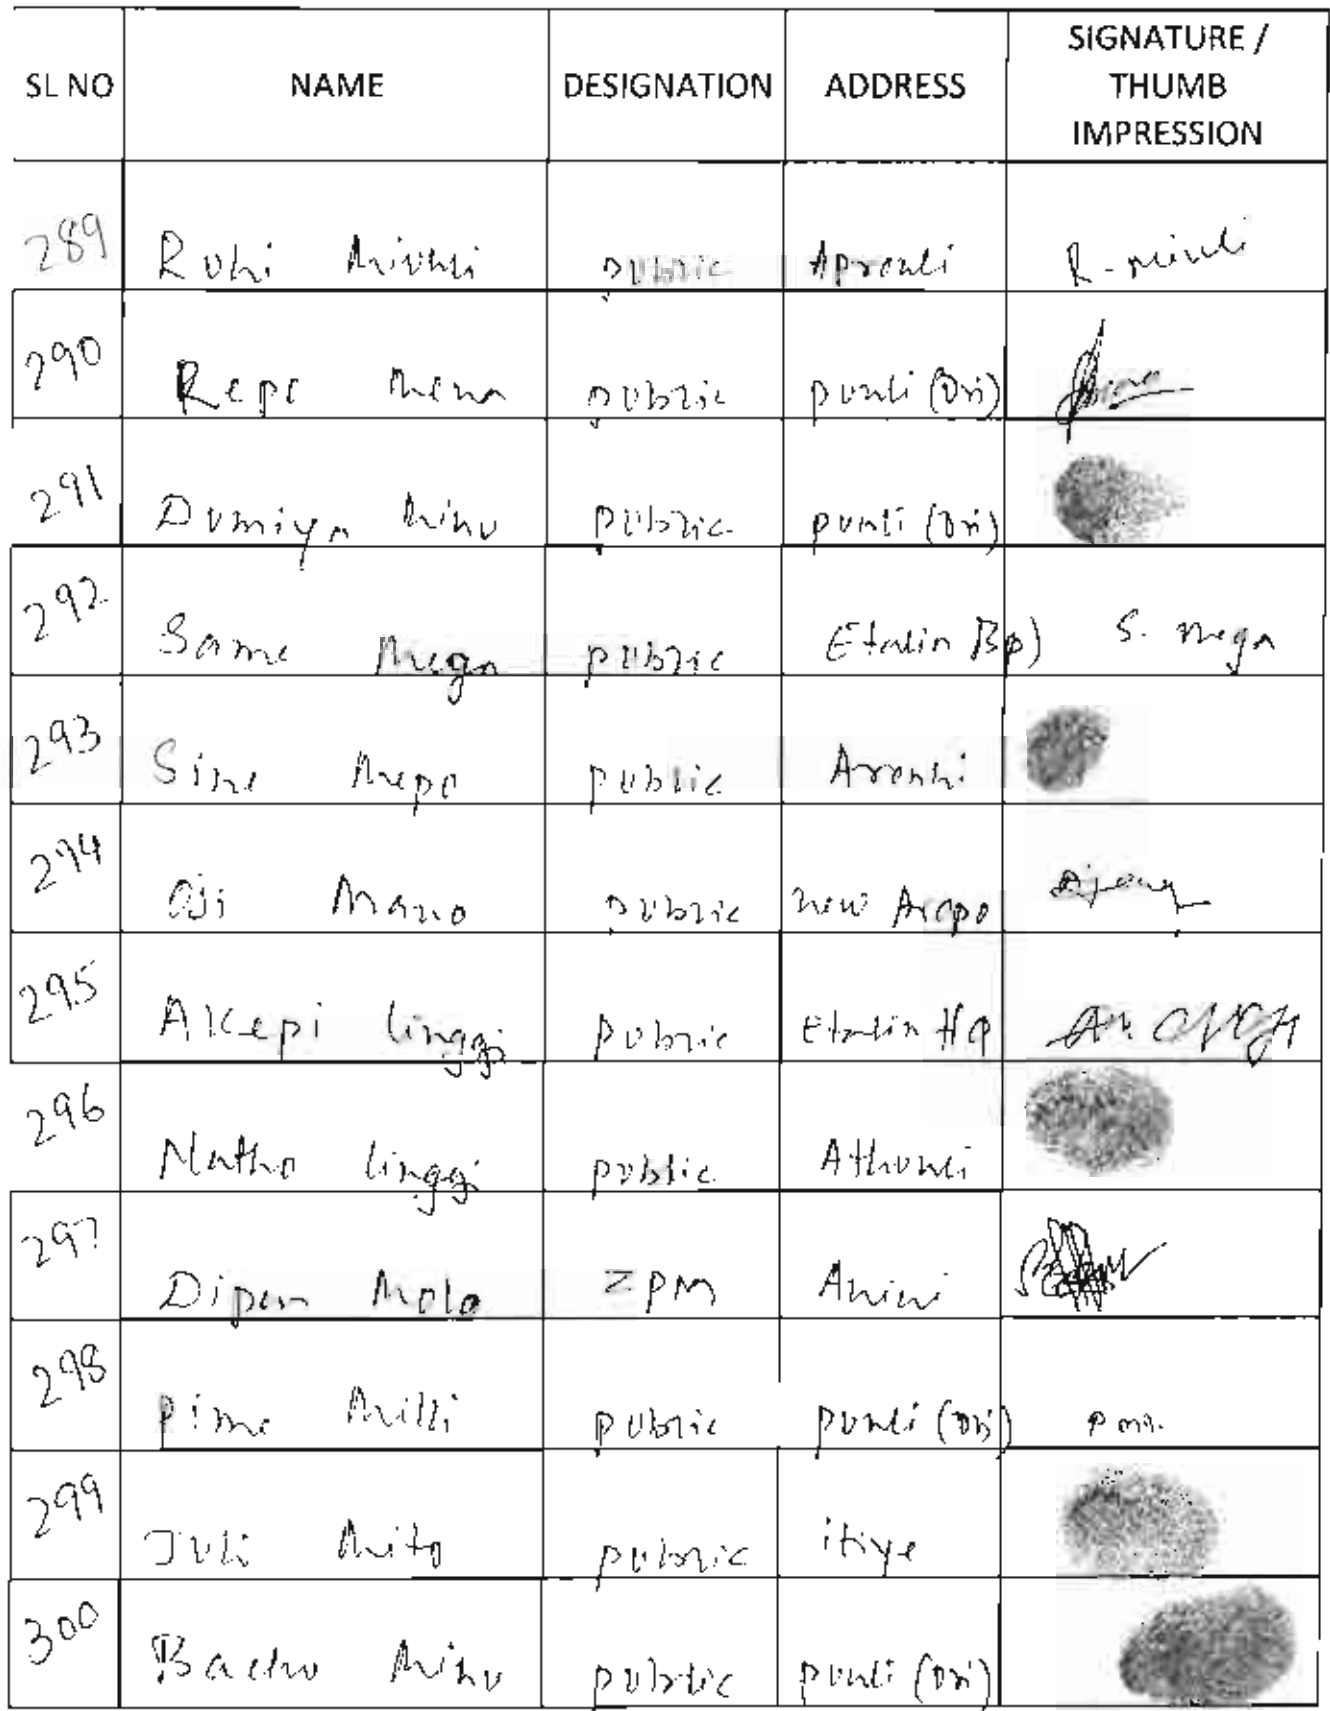 SL NO NAME DESIGNATION ADDRESS SIGNATURE / THUMB IMPRESSION
289 Ruhi public Aprouli R-
290 Repe Mena public punli (Dri)
291 Dumiya Mihu public punli (Dri)
292 Same Mega public Etalin S. Mega
293 Sime Mepo public
294 Oji public new Arepo
295 Akepi linggi public Etalin HQ
296 Natho linggi public Athunli
297 Dipen Molo ZPM Anini
298 Pime Milli public punli (Dri)
299 Juli Mito public itiye
300 Bachu Mihu public punli (Dri)